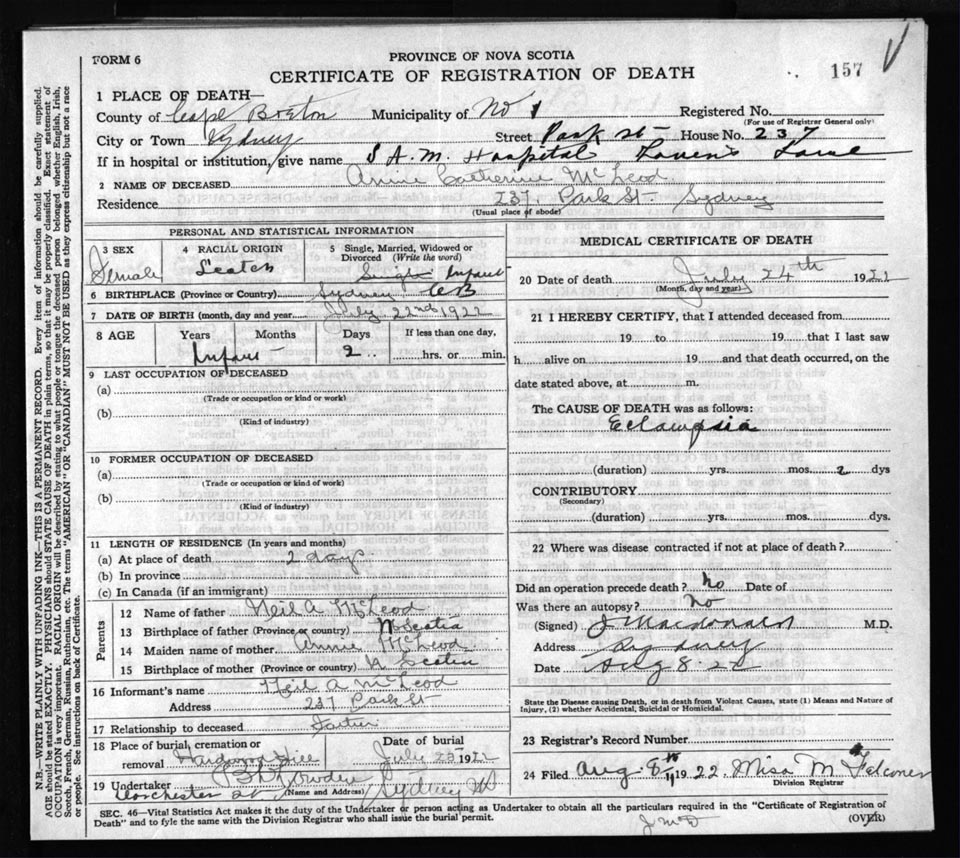 FORM 6
PROVINCE OF NOVA SCOTIA
CERTIFICATE OF REGISTRATION OF DEATH
157
1 PLACE OF DEATH—
County of Cape Breton Municipality of No 1 Registered No.
(For use of Registrar General only)
City or Town Sydney Street Park St House No. 237
If in hospital or institution, give name Hospital
2 NAME OF DECEASED Annie Catherine McLeod
Residence 237 Park St. Sydney
(Usual place of abode)
PERSONAL AND STATISTICAL INFORMATION
3 SEX Female
4 RACIAL ORIGIN Scotch
5 Single, Married, Widowed or Divorced (Write the word) Single Infant
6 BIRTHPLACE (Province or Country) Sydney CB
7 DATE OF BIRTH (month, day and year) July 22nd 1922
8 AGE Years Months Days If less than one day,
Infant 2 hrs. or min.
9 LAST OCCUPATION OF DECEASED
(a)
(Trade or occupation or kind or work)
(b)
(Kind of industry)
10 FORMER OCCUPATION OF DECEASED
(a)
(Trade or occupation or kind of work)
(b)
(Kind of industry)
11 LENGTH OF RESIDENCE (In years and months)
(a) At place of death 2 days
(b) In province
(c) In Canada (if an immigrant)
Parents
12 Name of father Neil A McLeod
13 Birthplace of father (Province or country) N Scotia
14 Maiden name of mother Annie McLeod
15 Birthplace of mother (Province or country) N Scotia
16 Informant's name Neil A McLeod
Address 237 Park St
17 Relationship to deceased Father
18 Place of burial, cremation or removal Hardwood Hill Date of burial July 25 1922
19 Undertaker
(Name and Address) Dorchester St Sydney NS
MEDICAL CERTIFICATE OF DEATH
20 Date of death July 24th 1922
(Month, day and year)
21 I HEREBY CERTIFY, that I attended deceased from
19 to 19 that I last saw
h alive on 19 and that death occurred, on the
date stated above, at m.
The CAUSE OF DEATH was as follows:
Eclampsia
(duration) yrs. mos. 2 dys
CONTRIBUTORY
(Secondary)
(duration) yrs. mos. dys.
22 Where was disease contracted if not at place of death?
Did an operation precede death? No Date of
Was there an autopsy? No
(Signed) J Macdonald M.D.
Address Sydney
Date Aug 8 - 22
State the Disease causing Death, or in death from Violent Causes, state (1) Means and Nature of
Injury, (2) whether Accidental, Suicidal or Homicidal.
23 Registrar's Record Number
24 Filed Aug. 8th 1922 Miss M Falconer
Division Registrar
SEC. 46—Vital Statistics Act makes it the duty of the Undertaker or person acting as Undertaker to obtain all the particulars required in the "Certificate of Registration of
Death" and to fyle the same with the Division Registrar who shall issue the burial permit.
(OVER)
N.B.—WRITE PLAINLY WITH UNFADING INK—THIS IS A PERMANENT RECORD. Every item of information should be carefully supplied.
AGE should be stated EXACTLY. PHYSICIANS should STATE CAUSE OF DEATH in plain terms, so that it may be properly classified. Exact statement of
OCCUPATION is very important. RACIAL ORIGIN will be described by stating to what people or tongue the deceased person belonged whether English, Irish,
Scotch, French, German, Russian, Ruthenian, etc. The terms "AMERICAN" OR "CANADIAN" MUST NOT BE USED as they express citizenship but not a race
or people. See instructions on back of Certificate.